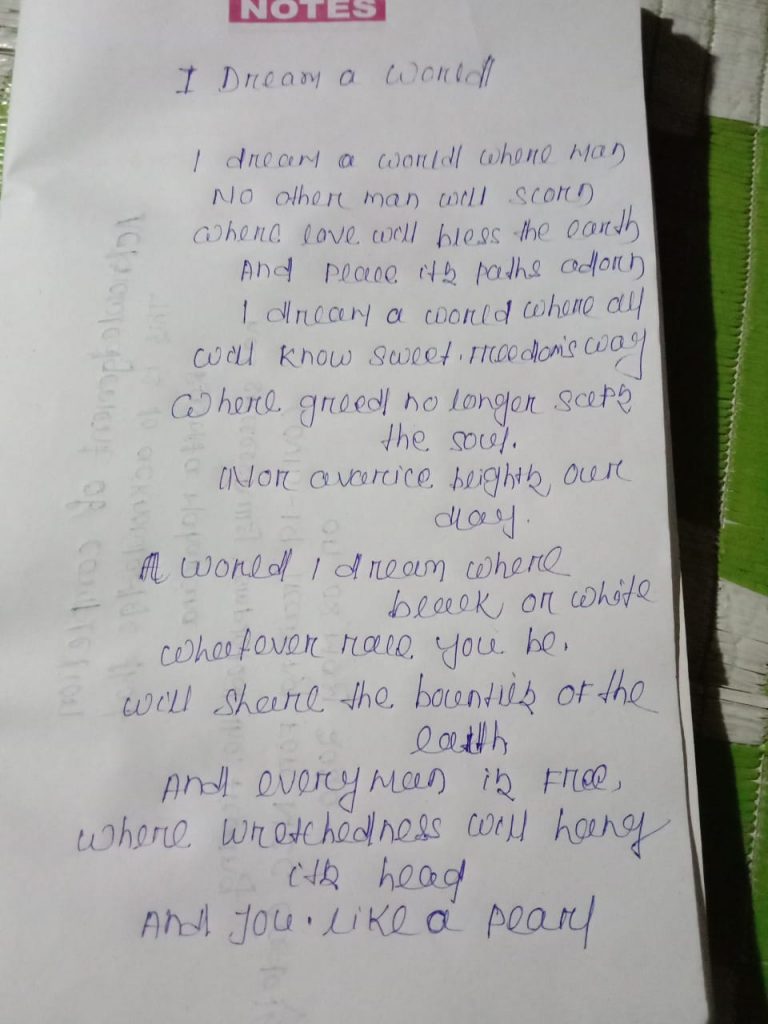 NOTES
I Dream a World
I dream a world where man
No other man will scorn
where love will bless the earth
And peace its paths adorn
I dream a world where all
will know sweet. Freedom's way
Where greed no longer saps
the soul.
Nor avarice blights our
day.
A world I dream where
black or white
whatever race you be.
will share the bounties of the
earth
And every man is Free,
where wretchedness will hang
its head
And joy. like a pearl